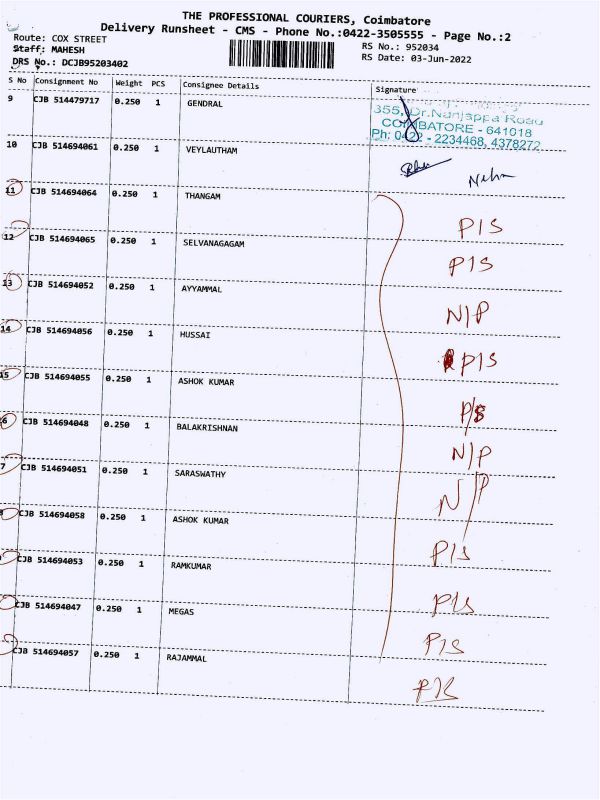 THE PROFESSIONAL COURIERS, Coimbatore
Delivery Runsheet - CMS - Phone No.:0422-3505555 - Page No.:2
Route: COX STREET
RS No.: 952034
Staff: MAHESH
RS Date: 03-Jun-2022
DRS No.: DCJB95203402
S No Consignment No Weight PCS Consignee Details Signature
9 CJB 514479717 0.250 1 GENDRAL
355, Dr.Nanjappa Road
COIMBATORE - 641018
Ph: 0422 - 2234468, 4378272
10 CJB 514694061 0.250 1 VEYLAUTHAM
11 CJB 514694064 0.250 1 THANGAM P/S
12 CJB 514694065 0.250 1 SELVANAGAGAM P/S
13 CJB 514694052 0.250 1 AYYAMMAL N/P
14 CJB 514694056 0.250 1 HUSSAI P/S
15 CJB 514694055 0.250 1 ASHOK KUMAR P/S
6 CJB 514694048 0.250 1 BALAKRISHNAN N/P
7 CJB 514694051 0.250 1 SARASWATHY N/P
CJB 514694058 0.250 1 ASHOK KUMAR P/S
CJB 514694053 0.250 1 RAMKUMAR P/S
CJB 514694047 0.250 1 MEGAS P/S
CJB 514694057 0.250 1 RAJAMMAL P/S